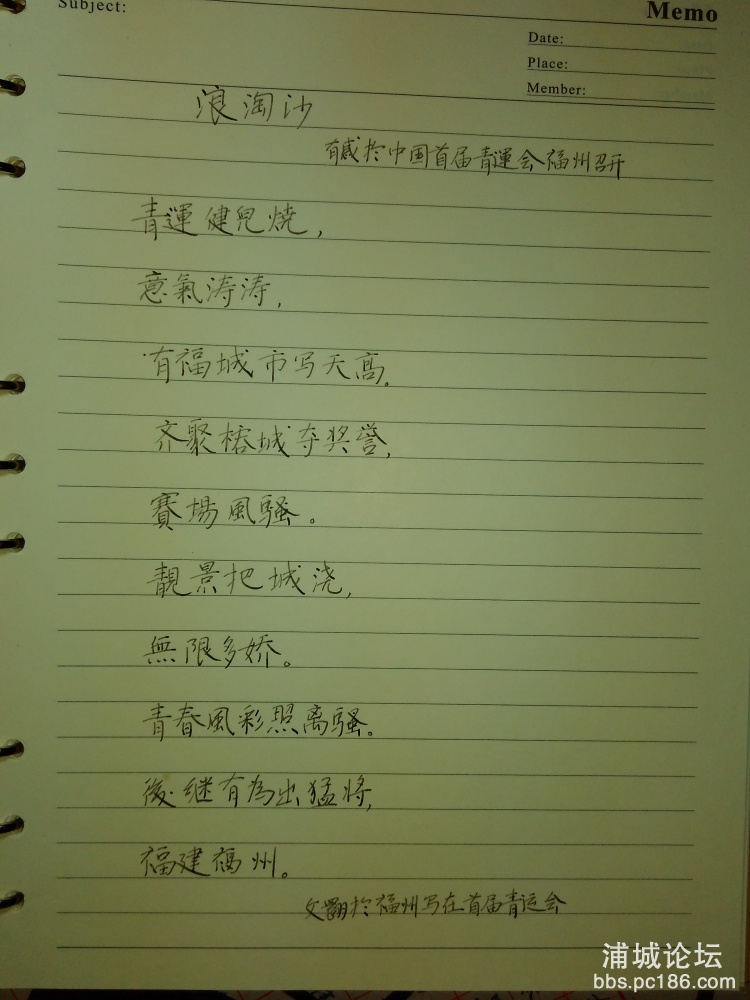 Subject:
Memo
Date:
Place:
Member:
浪淘沙
有感於中国首届青運会福州召开
青運健兒燒，
意氣涛涛，
有福城市写天高。
齐聚榕城夺奖誉，
賽場風骚。
靚景把城浇，
無限多娇。
青春風彩照离骚。
後继有為出猛将，
福建福州。
文 於福州写在首届青运会
浦城论坛
bbs.pc186.com